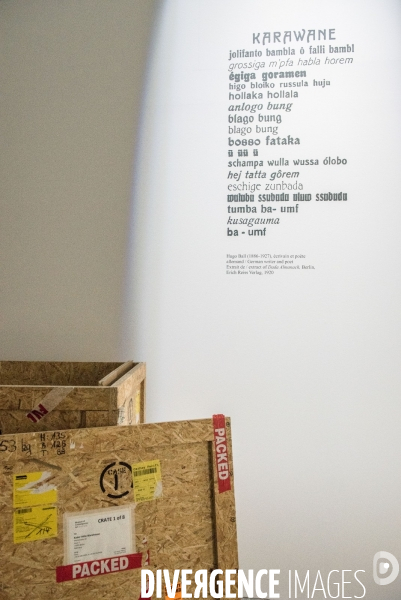 KARAWANE
jolifanto bambla ô falli bambl
grossiga m'pfa habla horem
égiga goramen
higo bloiko russula huju
hollaka hollala
anlogo bung
blago bung
blago bung
bosso fataka
ü üü ü
schampa wulla wussa ólobo
hej tatta gôrem
eschige zunbada
wulubu ssubudu uluw ssubudu
tumba ba- umf
kusagauma
ba - umf
Hugo Ball (1886-1927), écrivain et poète
allemand / German writer and poet
Extrait de / extract of Dada Almanach, Berlin,
Erich Reiss Verlag, 1920
PACKED
CRATE 1 of 6
PACKED
DIVERGENCE IMAGES